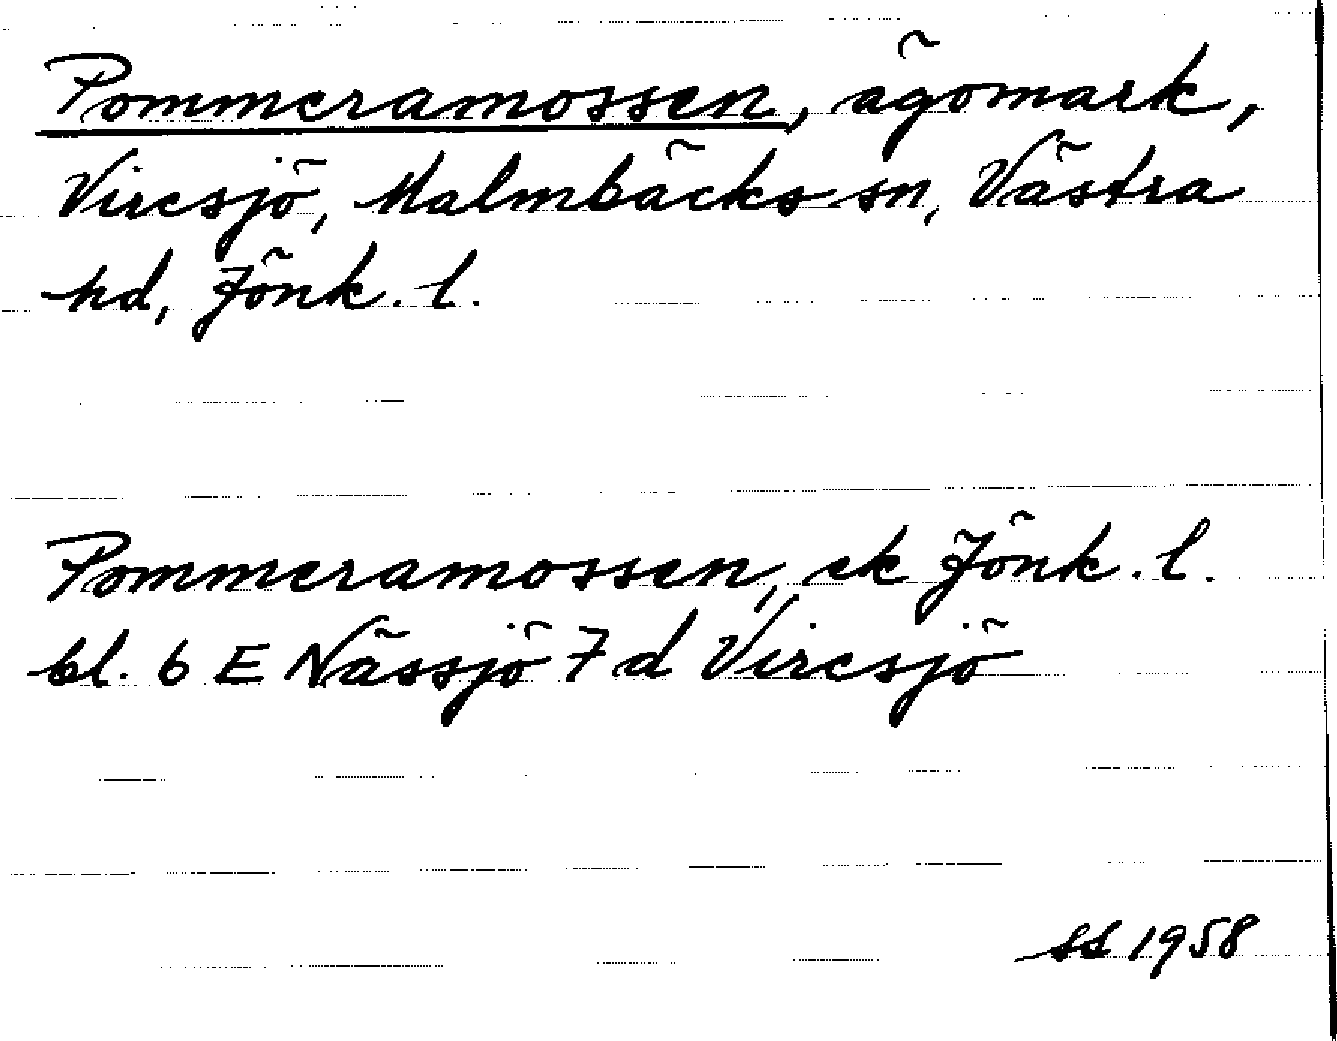 Pommeramossen, ägomark,
Viresjö, Malmbäcks sn, Västra
hd, Jönk. l.
Pommeramossen, ek Jönk. l.
bl. 6 E Nässjö 7 d Viresjö
SS 1958